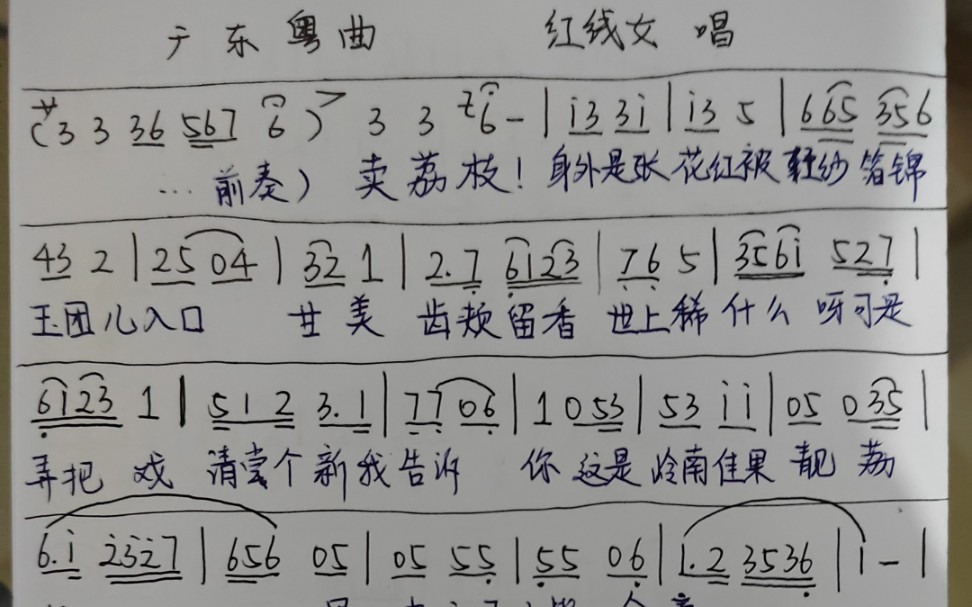 广东粤曲 红线女 唱
(サ3 3 36 567 6) 3 3 76- | i3 3i | i3 5 | 665 356
... 前奏) 卖荔枝! 身外是张花红被 轻纱箔锦
43 2 | 25 04 | 32 1 | 2.7 6123 | 76 5 | 356i 527 |
玉团儿入口 甘美 齿颊留香 世上稀 什么 呀可是
6123 1 | 512 3.1 | 77 06 | 1 0 53 | 53 i i | 05 0 35 |
弄把戏 清尝个新我告诉 你 这是岭南佳果 靓 荔
6.i 2327 | 656 05 | 05 55 | 55 06 | 1.2 3536 | i - |